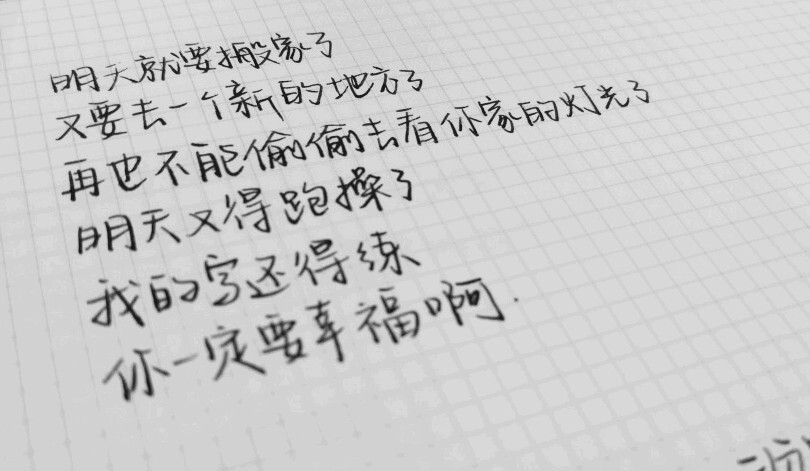 明天就要搬家了
又要去一个新的地方了
再也不能偷偷去看你家的灯光了
明天又得跑操了
我的字还得练
你一定要幸福啊.